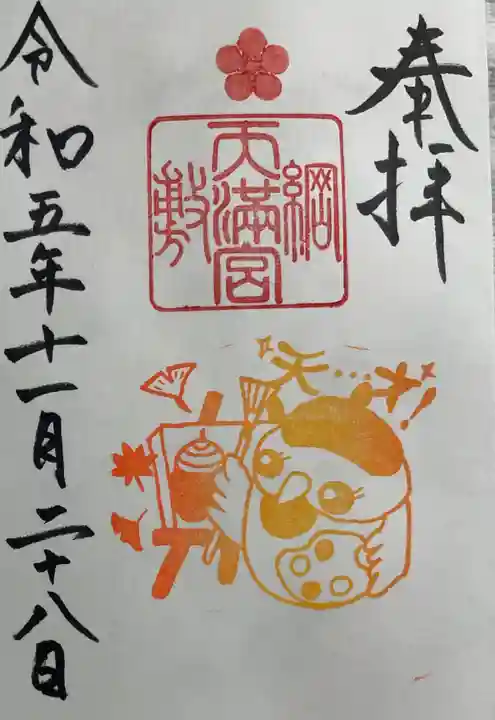 奉拝
綱敷
天満宮
天…才!
令和五年十一月二十八日